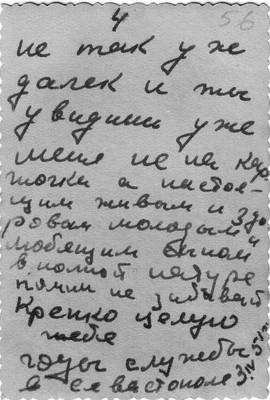 4
56
не так уже
далек и ты
увидиш уже
меня не на кар
точки а настоя-
щим живым и здо
ровым молодым и
любящим сыном
в полной натуре
помни не забывай
Крепко целую
тебя
годы службы
в севастополе 3.IV